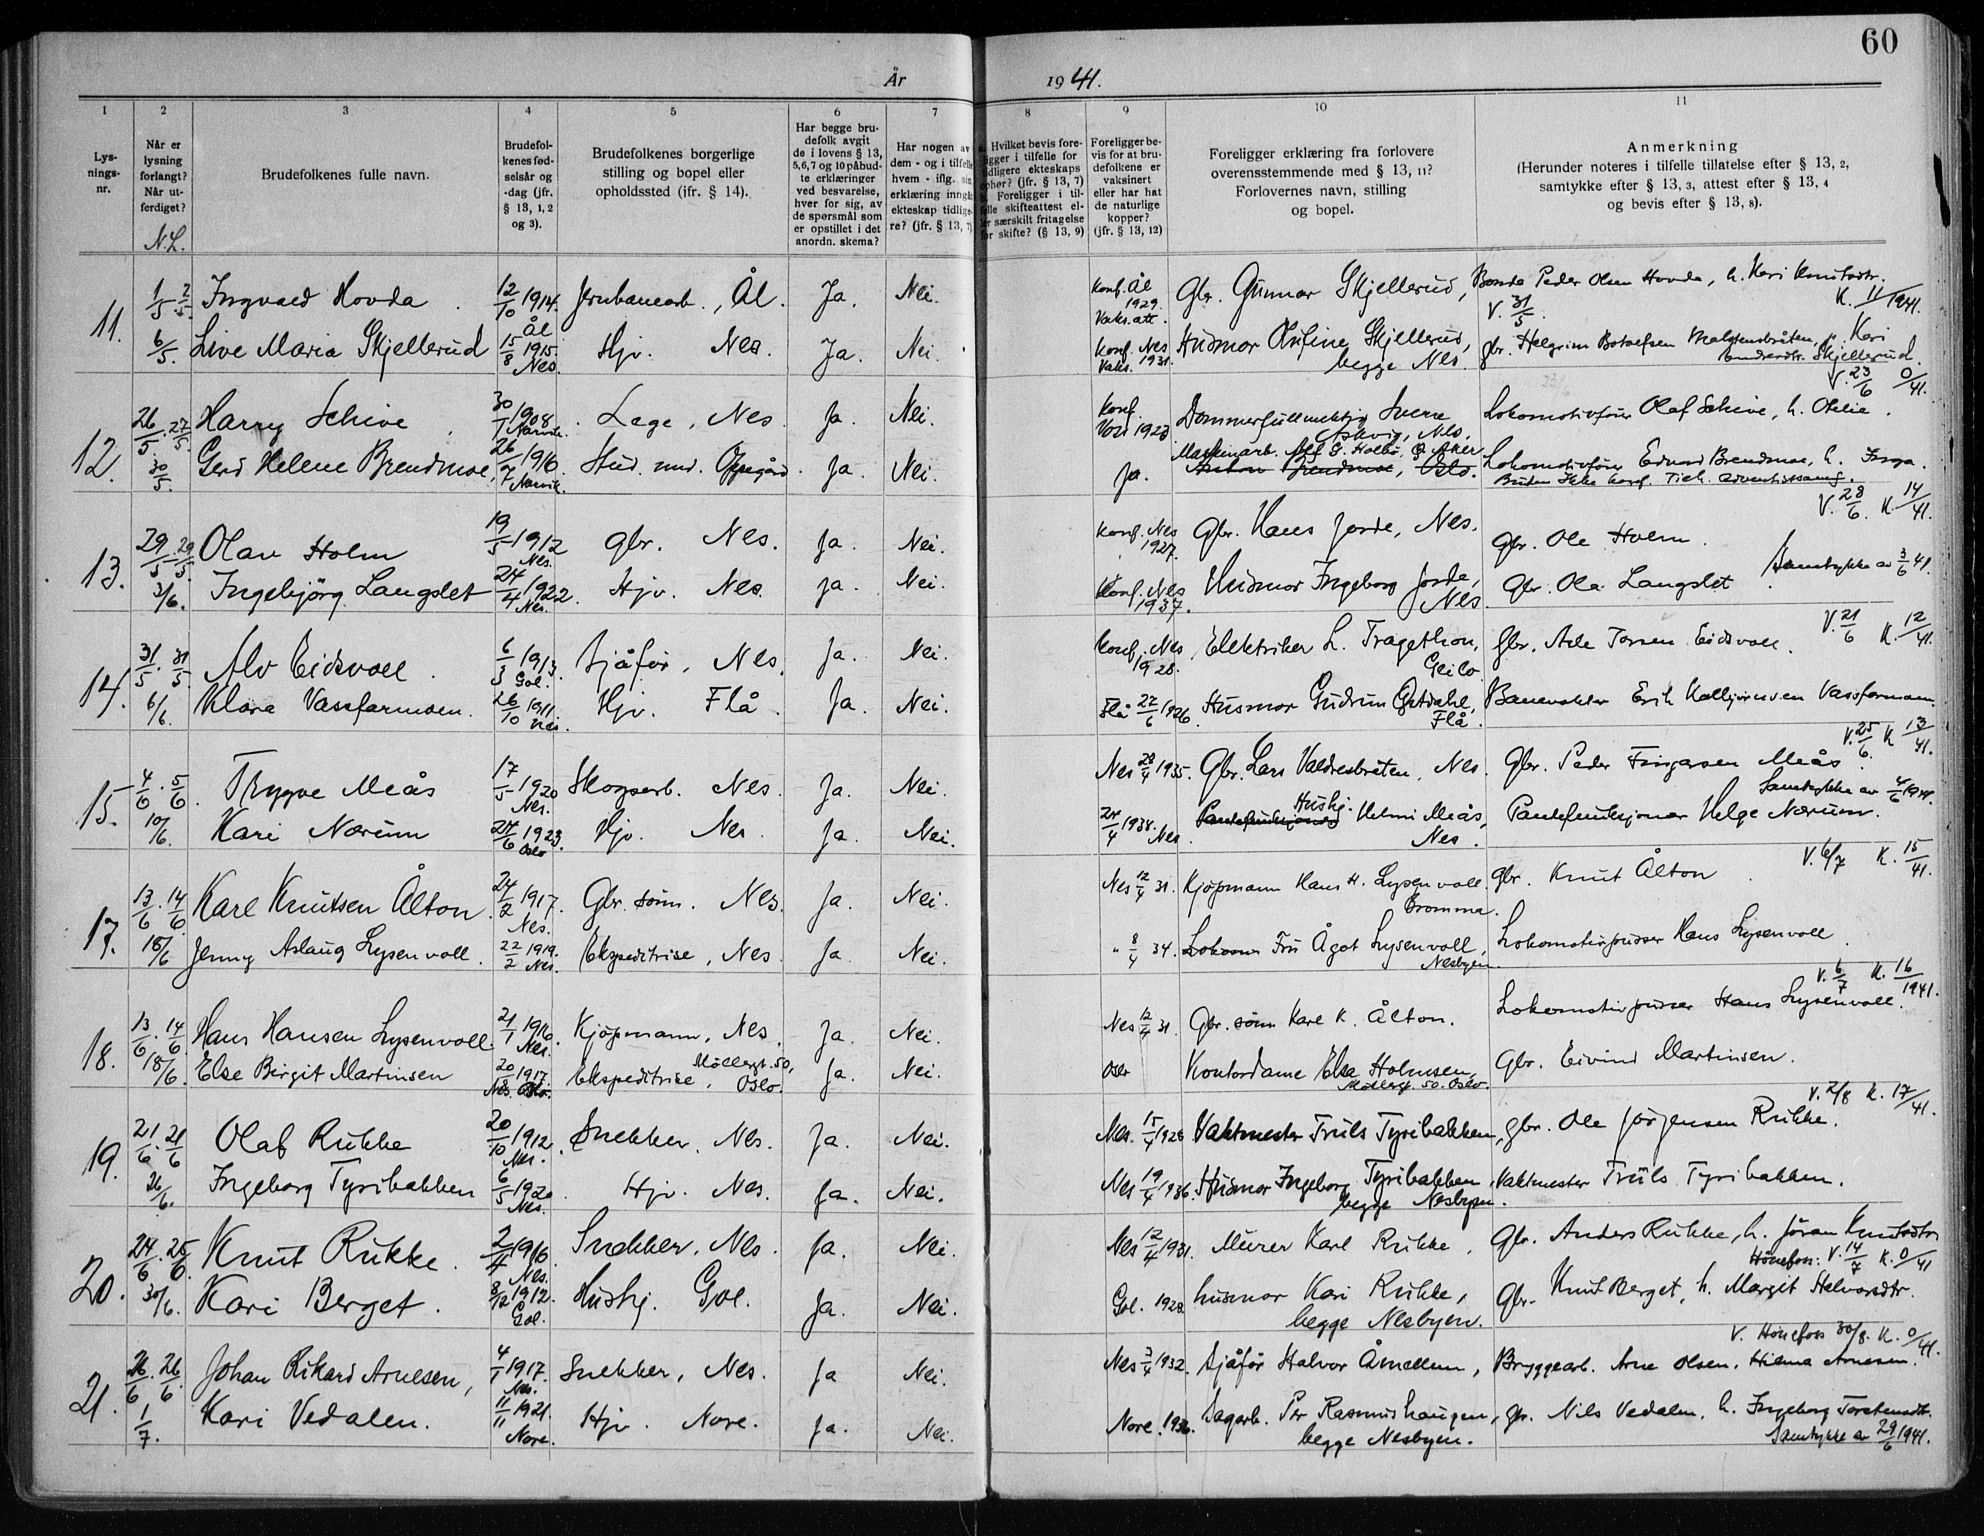 60
År 1941.
1 2 3 4 5 6 7 8 9 10 11
Lys-
nings-
nr.
Når er
lysning
forlangt?
Når ut-
ferdiget?
N.L.
Brudefolkenes fulle navn.
Brudefol-
kenes fød-
selsår og
-dag (jfr.
§ 13, 1, 2
og 3).
Brudefolkenes borgerlige
stilling og bopel eller
opholdssted (ifr. § 14).
Har begge bru-
defolk avgit
de i lovens § 13,
5,6,7 og 10 påbud-
te erklæringer
ved besvarelse,
hver for sig, av
de spørsmål som
er opstillet i det
anordn. skema?
Har nogen av
dem - og i tilfelle
hvem - iflg. sin
erklæring inngått
ekteskap tidlige-
re? (jfr. § 13, 7)
Hvilket bevis fore-
ligger i tilfelle for
tidligere ekteskaps
ophør? (jfr. § 13, 7)
Foreligger i til-
felle skifteattest el-
ler særskilt fritagelse
for skifte? (§ 13, 9)
Foreligger be-
vis for at bru-
defolkene er
vaksinert
eller har hat
de naturlige
kopper?
(jfr. § 13, 12)
Foreligger erklæring fra forlovere
overensstemmende med § 13, 11?
Forlovernes navn, stilling
og bopel.
Anmerkning
(Herunder noteres i tilfelle tillatelse efter § 13, 2,
samtykke efter § 13, 3, attest efter § 13, 4
og bevis efter § 13, 8).
11. 1/5 2/5. Ingvald Hovda 12/10 1914. Ål Jernbanearb., Ål. Ja. Nei. Konf. Ål 1929. Vaks.att. Gbr. Gunnar Skjellerud, Bonde Peder Olsen Hovda, h. Kari Knutsdtr.
V. 31/5. K. 11/1941.
6/5. Live Maria Skjellerud 15/8 1915. Nes. Hjv. Nes. Ja. Nei. Konf. Nes 1931. Vaks. Husmor Olufine Skjellerud, begge Nes. gbr. Helgrim Botolfsen, h. Kari Skjellerud.
V. 23/6 0/41.
12. 26/5. 27/5. Harry Schive 30/1 1908. Narvik. Lege, Nes. Ja. Nei. Konf. 1923 Dommerfullmektig Sverre Askvig, Nes. Lokomotivfører Olaf Schive, h. Otelie.
30/5. Gerd Helene Brendmoe, 26/7 1916. Narvik. Stud. med. Oppegård. Ja. Nei. Ja. Maskinarb. Alf G. Holbø, Ø. Aker Anton Brendmoe, Oslo. Lokomotivfører Edvard Brendmoe, h. Inga.
Bruden ikke konf. Tilh. adventistsamf.
V. 28/6. K. 14/41.
13. 29/5. 29/5. Olav Holm 19/5 1912 Nes. Gbr. Nes. Ja. Nei. Konf. Nes 1927. Gbr. Hans Jorde, Nes. Gbr. Ole Holm.
3/6. Ingebjörg Langslet 24/4 1922. Nes. Hjv. Nes. Ja. Nei. Konf. Nes 1937. Husmor Ingeborg Jorde, Nes. Gbr. Ola Langslet. Samtykke av 3/6 41.
V. 21/6 K. 12/41.
14. 31/5. 31/5. Alv Eidsvoll 6/3 1913. Gol. Sjåför, Nes. Ja. Nei. Konf. Nes 1928. Elektriker L. Tragethon, Geilo. Gbr. Asle Torsen Eidsvoll.
6/6. Klara Vassfarmoen. 26/10 1911. Nes. Hjv. Flå. Ja. Nei. Flå 27/6 1926. Husmor Gudrun Gjetdahl, Flå. Banevokter Erik Vassfarmoen.
V. 25/6. K 13/41.
15. 4/6. 5/6. Trygve Meås 17/5 1920 Nes. Skogsarb. Nes. Ja. Nei. Nes 28/4 1935. Gbr. Lars Valdresbråten, Nes. Gbr. Peder Fingarsen Meås.
Samtykke av 4/6 1941.
10/6. Kari Nærum 24/6 1923. Oslo Hjv. Nes. Ja. Nei. 24/4 1938. Nes. Hushj. Helmi Meås, Nes. Pantefunksjonær Helge Nærum.
V. 6/7 K. 15/41.
17. 13/6. 14/6. Karl Knutsen Ålton 24/2 1917. Nes. Gbr. sönn. Nes. Ja. Nei. Nes 12/4 31. Kjöpmann Hans H. Lysenvoll. Bromma. Gbr. Knut Ålton
18/6 Jenny Aslaug Lysenvoll. 22/2 1919. Nes. Ekspeditrise, Nes. Ja. Nei. " 8/4 34. Fru Ågot Lysenvoll, Nesbyen. Lokomotivpusser Hans Lysenvoll
V. 6/7 K. 16/1941.
18. 13/6. 14/6. Hans Hansen Lysenvoll. 21/1 1916. Nes. Kjöpmann, Nes. Ja. Nei. Nes 12/4 31. Gbr. sönn Karl K. Ålton. Lokomotivpusser Hans Lysenvoll.
18/6. Else Birgit Martinsen 20/8 1917. Nes. Oslo. Ekspeditrise, Möllergt. 50, Oslo. Ja. Nei. Oslo Kontordame Elsa Holmsen, Möllergt. 50. Oslo. Gbr. Eivind Martinsen.
V. 2/8 K. 17/41.
19. 21/6. 21/6 Olaf Rukke 20/10 1912. Nes. Snekker, Nes. Ja. Nei. Nes. 15/4 1928 Vaktmester Truls Tyribakken, gbr. Ole Jörgensen Rukke.
26/6. Ingeborg Tyribakken 6/5 1920. Nes. Hjv. Nes. Ja. Nei. Nes 19/4 1936. Husmor Ingeborg Tyribakken, begge Nesbyen. Vaktmester Truls Tyribakken.
20. 24/6. 25/6. Knut Rukke. 2/4 1916. Nes. Snekker, Nes. Ja. Nei. Nes 12/4 1931. Murer Karl Rukke, Gbr. Anders Rukke, h. Jöran Knutsdtr
Hönefoss: V. 14/7 K. 0/41
30/6. Kari Berget. 8/12 1912. Gol. Hushj. Gol. Ja. Nei. Gol. 1928. husmor Kari Rukke, begge Nesbyen. Gbr. Knut Berget, h. Margit Halvorsdtr.
V. Hönefoss 30/8. K. 0/41.
21. 26/6. 26/6. Johan Rikard Arnesen, 4/1 1917. Nes. Snekker, Nes. Ja Nei. Nes 3/4 1932. Sjåför Halvor Åmellem, Bryggearb. Arne Olsen. Hilma Arnesen.
1/7. Kari Vedalen. 11/11 1921. Nore. Hjv. Nore. Ja. Nei. Nore. 1936. Sagarb. Per Rasmushaugen, begge Nesbyen. gbr. Nils Vedalen, h. Ingeborg Torstensdtr.
Samtykke av 29/6 1941.